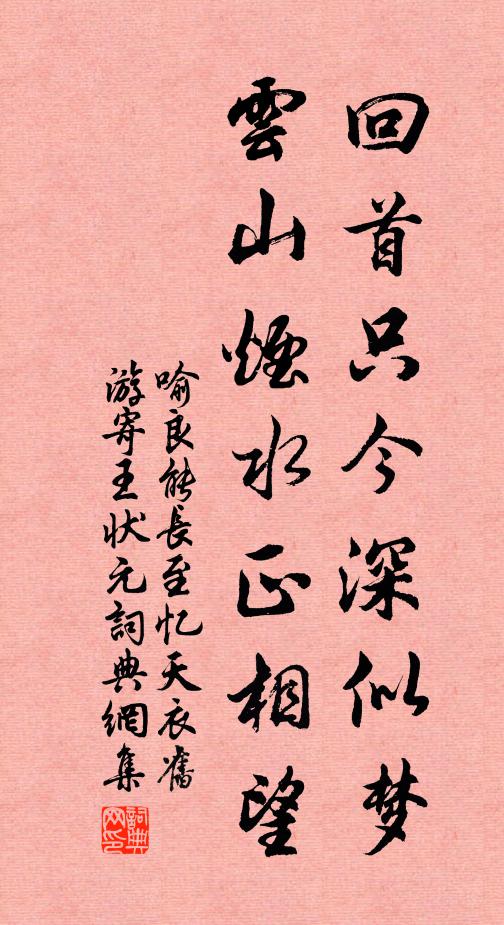 回首只今深似梦
雲山煙水正相望
喻良能長至忆天衣舊
游寄王状元詞典網集
詞典网印